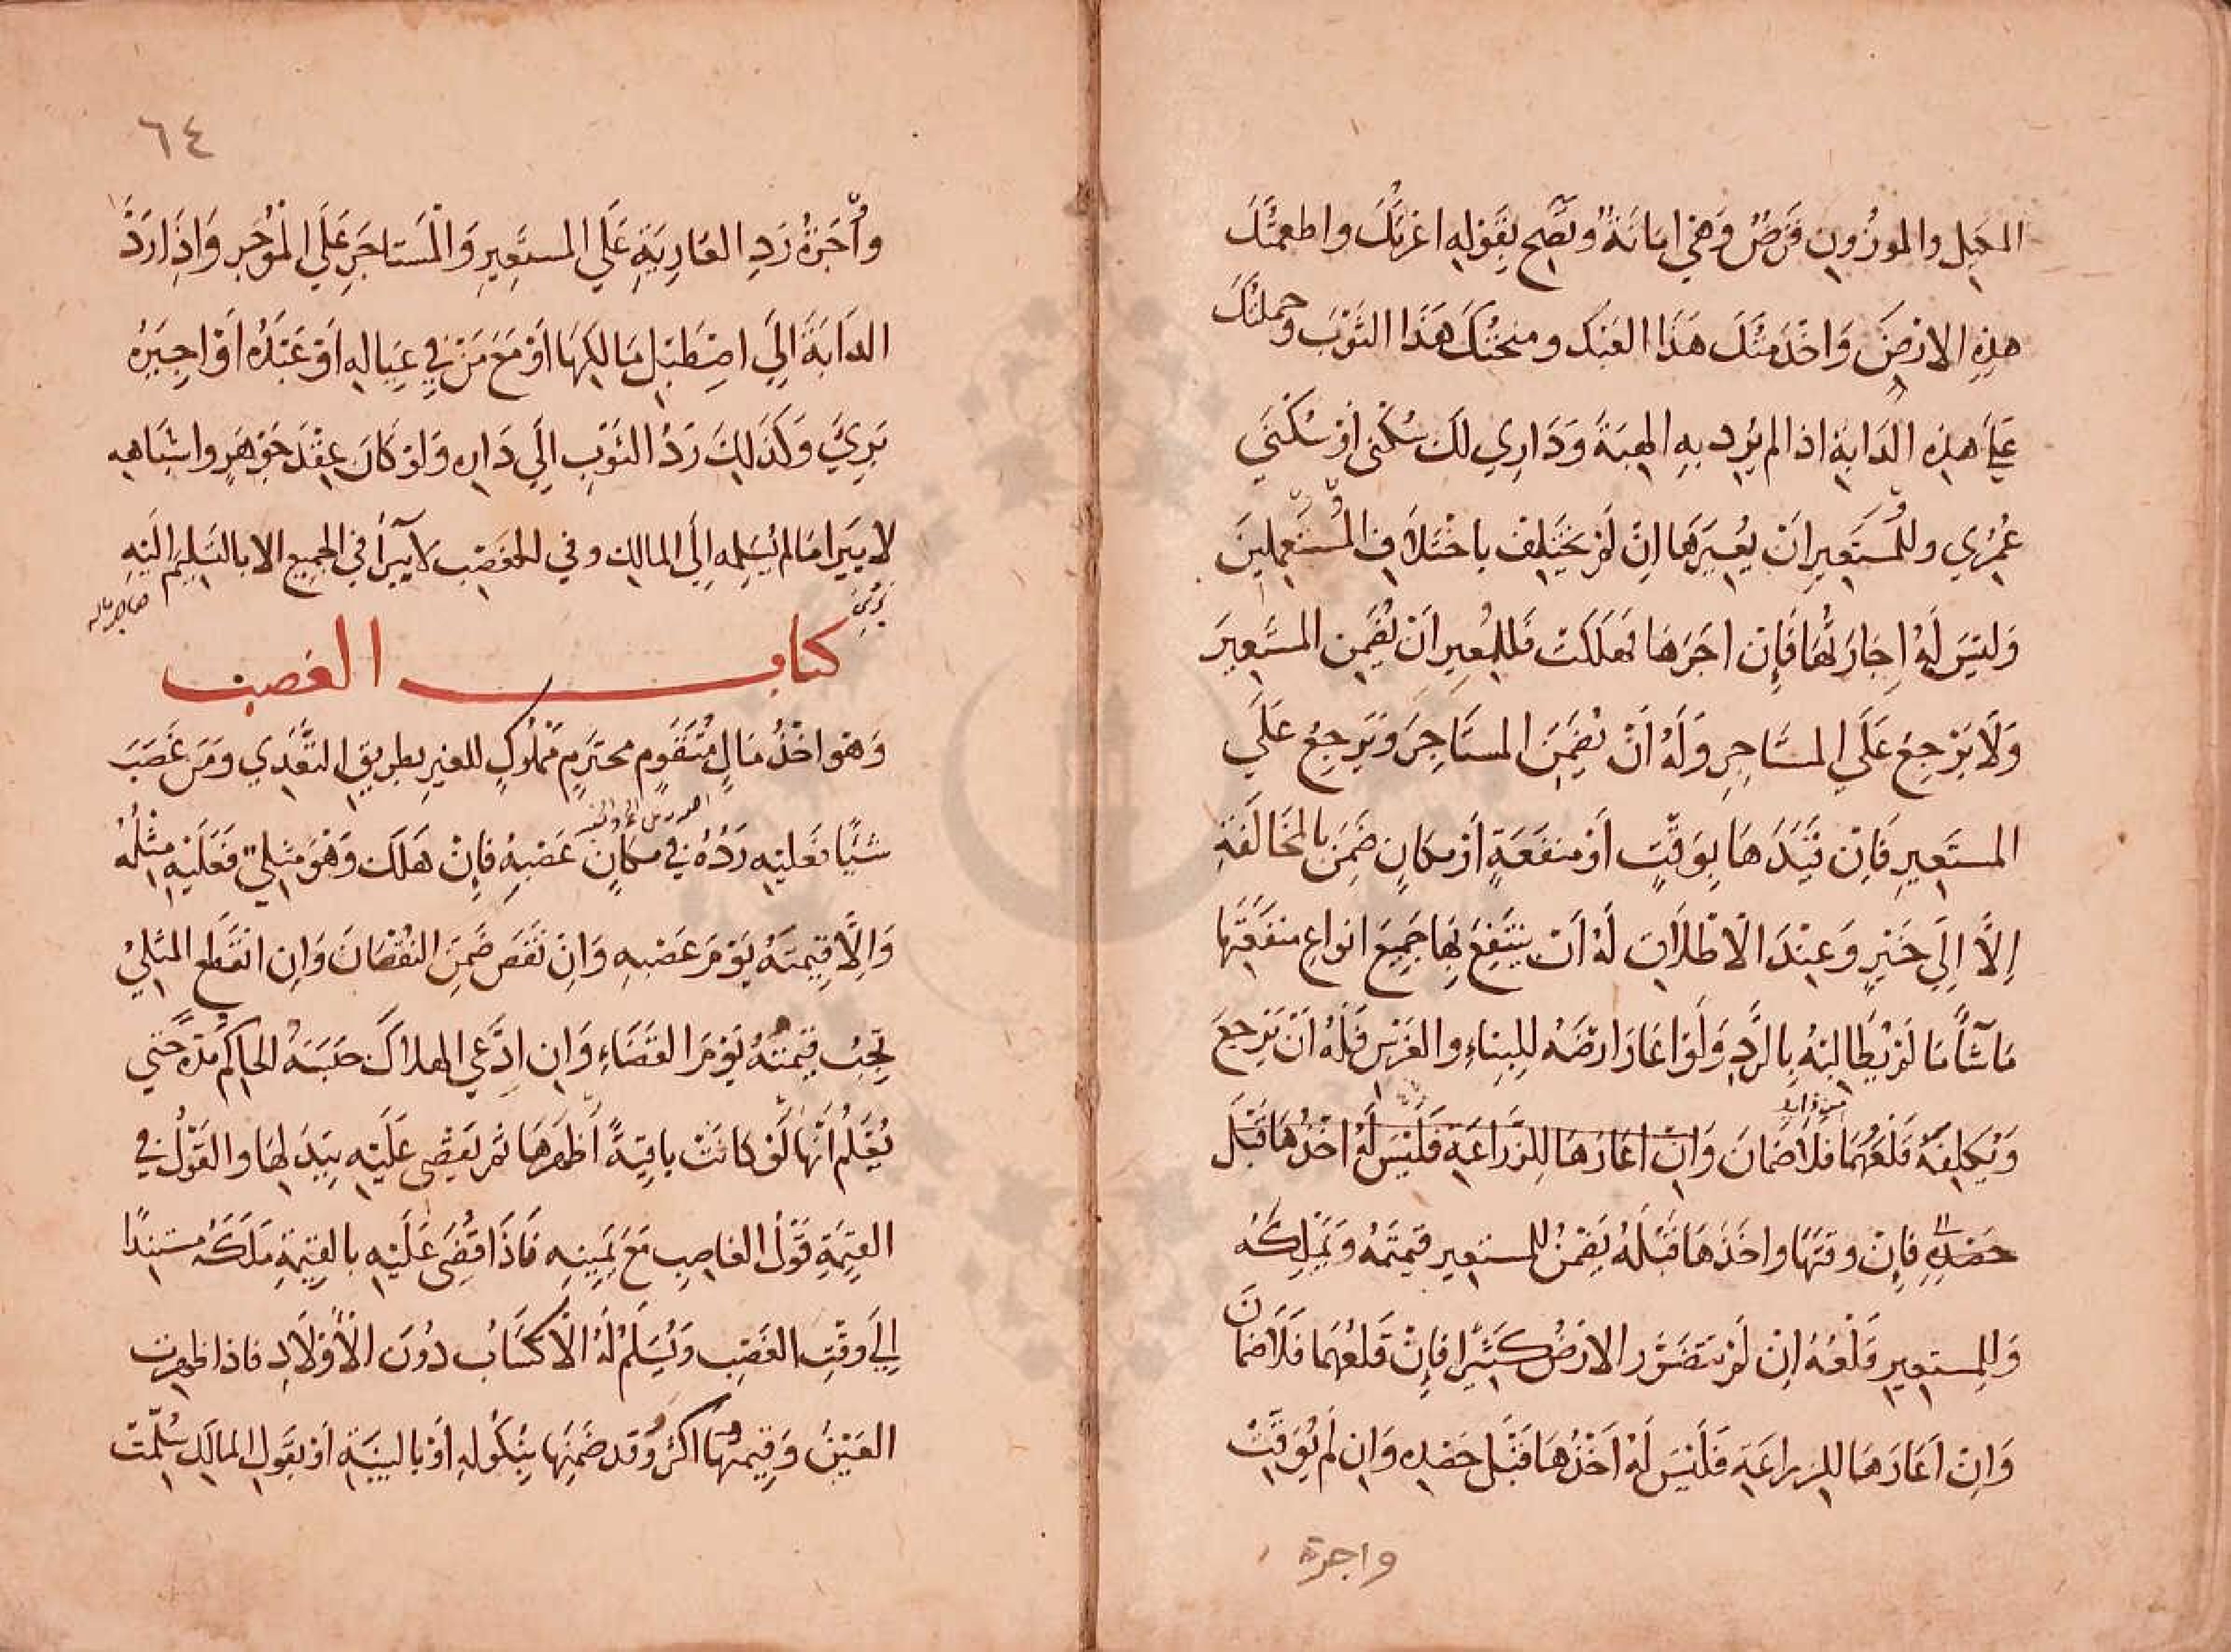 المكيل والموزون قرض وهي امانة وتصح بقوله اعرتك واطعمتك
هذه الارض واخدمتك هذا العبد ومنحتك هذا الثوب وحملتك
على هذه الدابة اذا لم يرد به الهبة وداري لك سكنى او سكنى
عمري وللمستعير ان يعيرها ان لم يختلف باختلاف المستعملين
وليس له اجارتها فان اجرها فهلكت فللمعير ان يضمن المستعير
ولا يرجع على المستاجر وله ان يضمن المستاجر ويرجع على
المستعير فان قيدها بوقت او منفعة او مكان ضمن بالمخالفة
الا الى خير وعند الاطلاق له ان ينتفع بها جميع انواع منفعتها
ما شآ ما لم يطالبه بالرد ولو اعار ارضه للبناء والغرس فله ان يرجع
ويكلفه قلعهما فلا ضمان وان اعارها للزراعة فليس له اخذها قبل
حصده فان وقتها واخذها قبله يضمن للمستعير قيمته ويملكه
وللمستعير قلعه ان لم تتضرر الارض كثيرا فان قلعهما فلا ضمان
وان اعارها للزراعة فليس له اخذها قبل حصده وان لم يوقت
واجرة
٦٤
واجرة رد العارية على المستعير والمستاجر على المؤجر واذا رد
الدابة الى اصطبل مالكها او مع من في عياله او عبده او اجيره
بريء وكذلك رد الثوب الى داره ولو كان عقد جوهر واشباهه
لا يبرا ما لم يسلمه الى المالك وفي الغصب لا يبرأ في الجميع الا بالتسليم اليه
كتاب الغصب
وهو اخذ مال متقوم محترم مملوك للغير بطريق التعدي ومن غصب
شيا فعليه رده في مكان غصبه فان هلك وهو مثلي فعليه مثله
والا قيمته يوم غصبه وان نقص ضمن النقصان وان انقطع المثلي
تجب قيمته يوم القضاء وان ادعى الهلاك حبسه الحاكم مدة حتى
يعلم انها لو كانت باقية اظهرها ثم يقضى عليه ببدلها والقول في
القيمة قول الغاصب مع يمينه فاذا قضى عليه بالقيمة ملكه مستندا
الى وقت الغصب ويسلم له الاكساب دون الاولاد فاذا ظهرت
العين وقيمتها اكثر وقد ضمنها بنكوله او بالبينة او بقول المالك سلمت